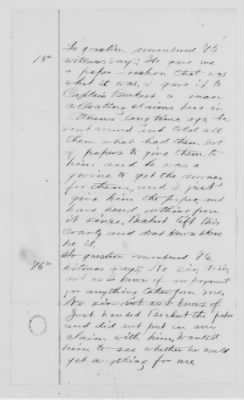 15"
To question numbered 15
witness says: He gave me
a paper - reckon that was
what it was, I gave it to
Captain Beckert a man
collecting claims here in
Athens long time ago he
sent around and told all
them what had them sort
of papers to give them to
him and he was a
gwine to get the money
for them, and I just
give him the paper and
have heard nothing from
it since, Beckert left this
County and dont know where
he is.
76"
To question numbered 76
witness says: No sir
not as I know of no payment
for anything taken from me,
No sir not as I knows of
Just handed Beckert the paper
and did not put in any
claim with him, wanted
him to see whether he could
get anything for me